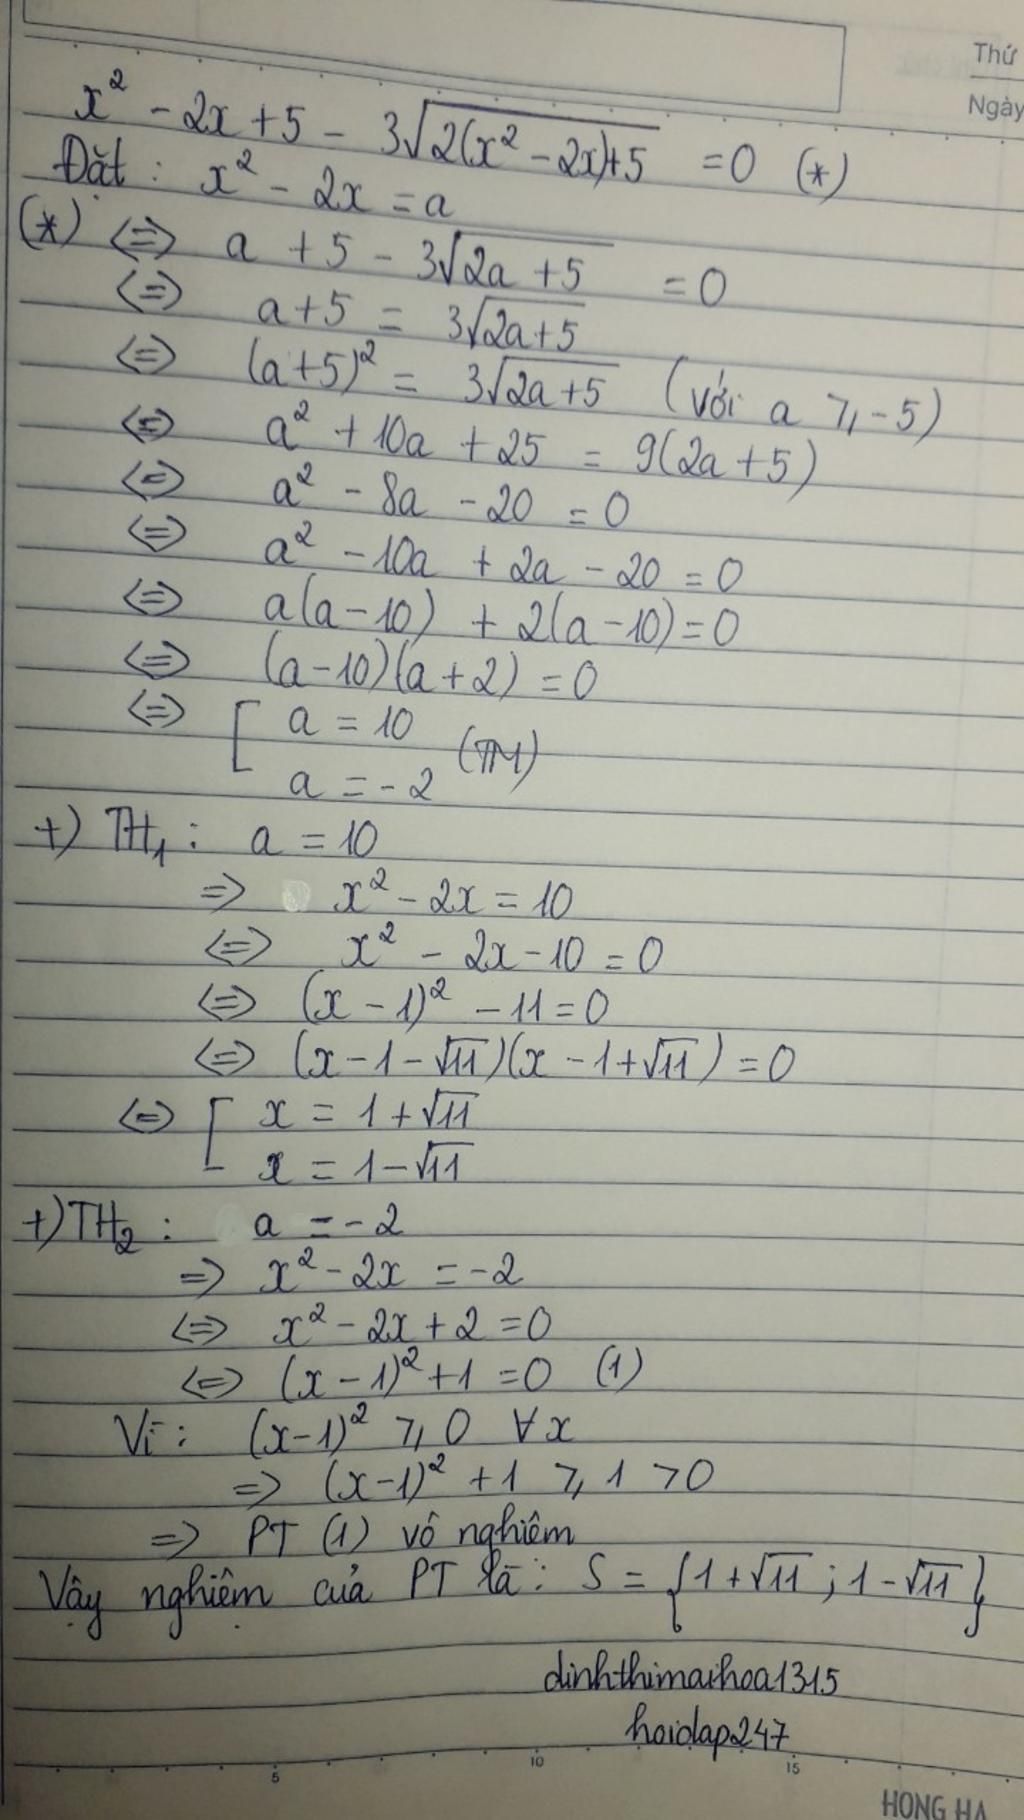 Thứ
Ngày
x² - 2x + 5 - 3√2(x² - 2x)+5 = 0 (*)
Đặt : x² - 2x = a
(*) <=> a + 5 - 3√2a + 5 = 0
<=> a + 5 = 3√2a + 5
<=> (a + 5)² = 3√2a + 5 (với a ≥ -5)
<=> a² + 10a + 25 = 9(2a + 5)
<=> a² - 8a - 20 = 0
<=> a² - 10a + 2a - 20 = 0
<=> a(a - 10) + 2(a - 10) = 0
<=> (a - 10)(a + 2) = 0
<=> [ a = 10
a = -2 (TM)
+) TH₁ : a = 10
=> x² - 2x = 10
<=> x² - 2x - 10 = 0
<=> (x - 1)² - 11 = 0
<=> (x - 1 - √11)(x - 1 + √11) = 0
<=> [ x = 1 + √11
x = 1 - √11
+) TH₂ : a = -2
=> x² - 2x = -2
<=> x² - 2x + 2 = 0
<=> (x - 1)² + 1 = 0 (1)
Vì : (x - 1)² ≥ 0 ∀x
=> (x - 1)² + 1 ≥ 1 > 0
=> PT (1) vô nghiêm
Vậy nghiệm của PT là : S = {1 + √11 ; 1 - √11}
dinhthimaihoa1315
hoidap247
5 10 15
HONG HA